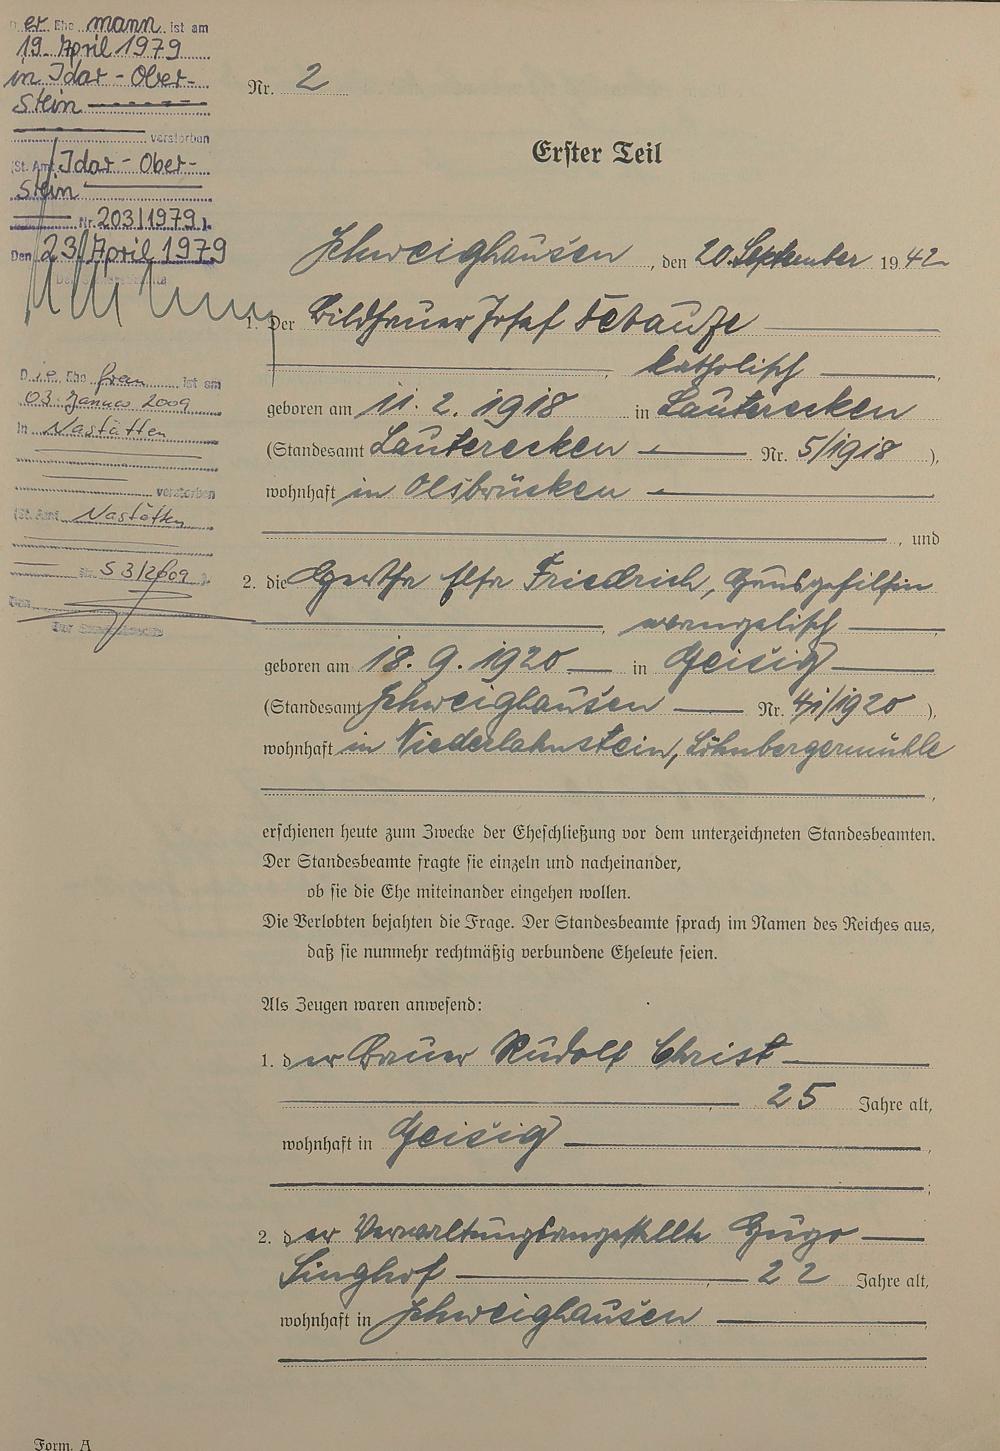 Der Ehe mann ist am
19. April 1979
in Idar-Ober-
stein
verstorben
(St. Amt Idar-Ober-
stein
Nr. 203/1979 ).
Den 23. April 1979
Der Standesbeamte
Die Ehe frau ist am
03. Januar 2009
in Nastätten
verstorben
(St. Amt Nastätten
Nr. S 3/2009 ).
Den
Der Standesbeamte
Nr. 2
Erster Teil
Schweighausen, den 20. September 1942
1. Der Bildhauer Josef
katholisch,
geboren am 11. 2. 1918 in Lauterecken
(Standesamt Lauterecken Nr. 5/1918 ),
wohnhaft in Olsbrücken
, und
2. die Hertha Elsa Friedrich, Hausgehilfin
, evangelisch,
geboren am 18. 9. 1920 in Geisig
(Standesamt Schweighausen Nr. 41/1920 ),
wohnhaft in Niederlahnstein, Löhnbergermühle
,
erschienen heute zum Zwecke der Eheschließung vor dem unterzeichneten Standesbeamten.
Der Standesbeamte fragte sie einzeln und nacheinander,
ob sie die Ehe miteinander eingehen wollen.
Die Verlobten bejahten die Frage. Der Standesbeamte sprach im Namen des Reiches aus,
daß sie nunmehr rechtmäßig verbundene Eheleute seien.
Als Zeugen waren anwesend:
1. der Bauer Rudolf Christ
, 25 Jahre alt,
wohnhaft in Geisig,
;
2. der Verwaltungsangestellte Hugo
Singhof, 22 Jahre alt,
wohnhaft in Schweighausen,
Form. A